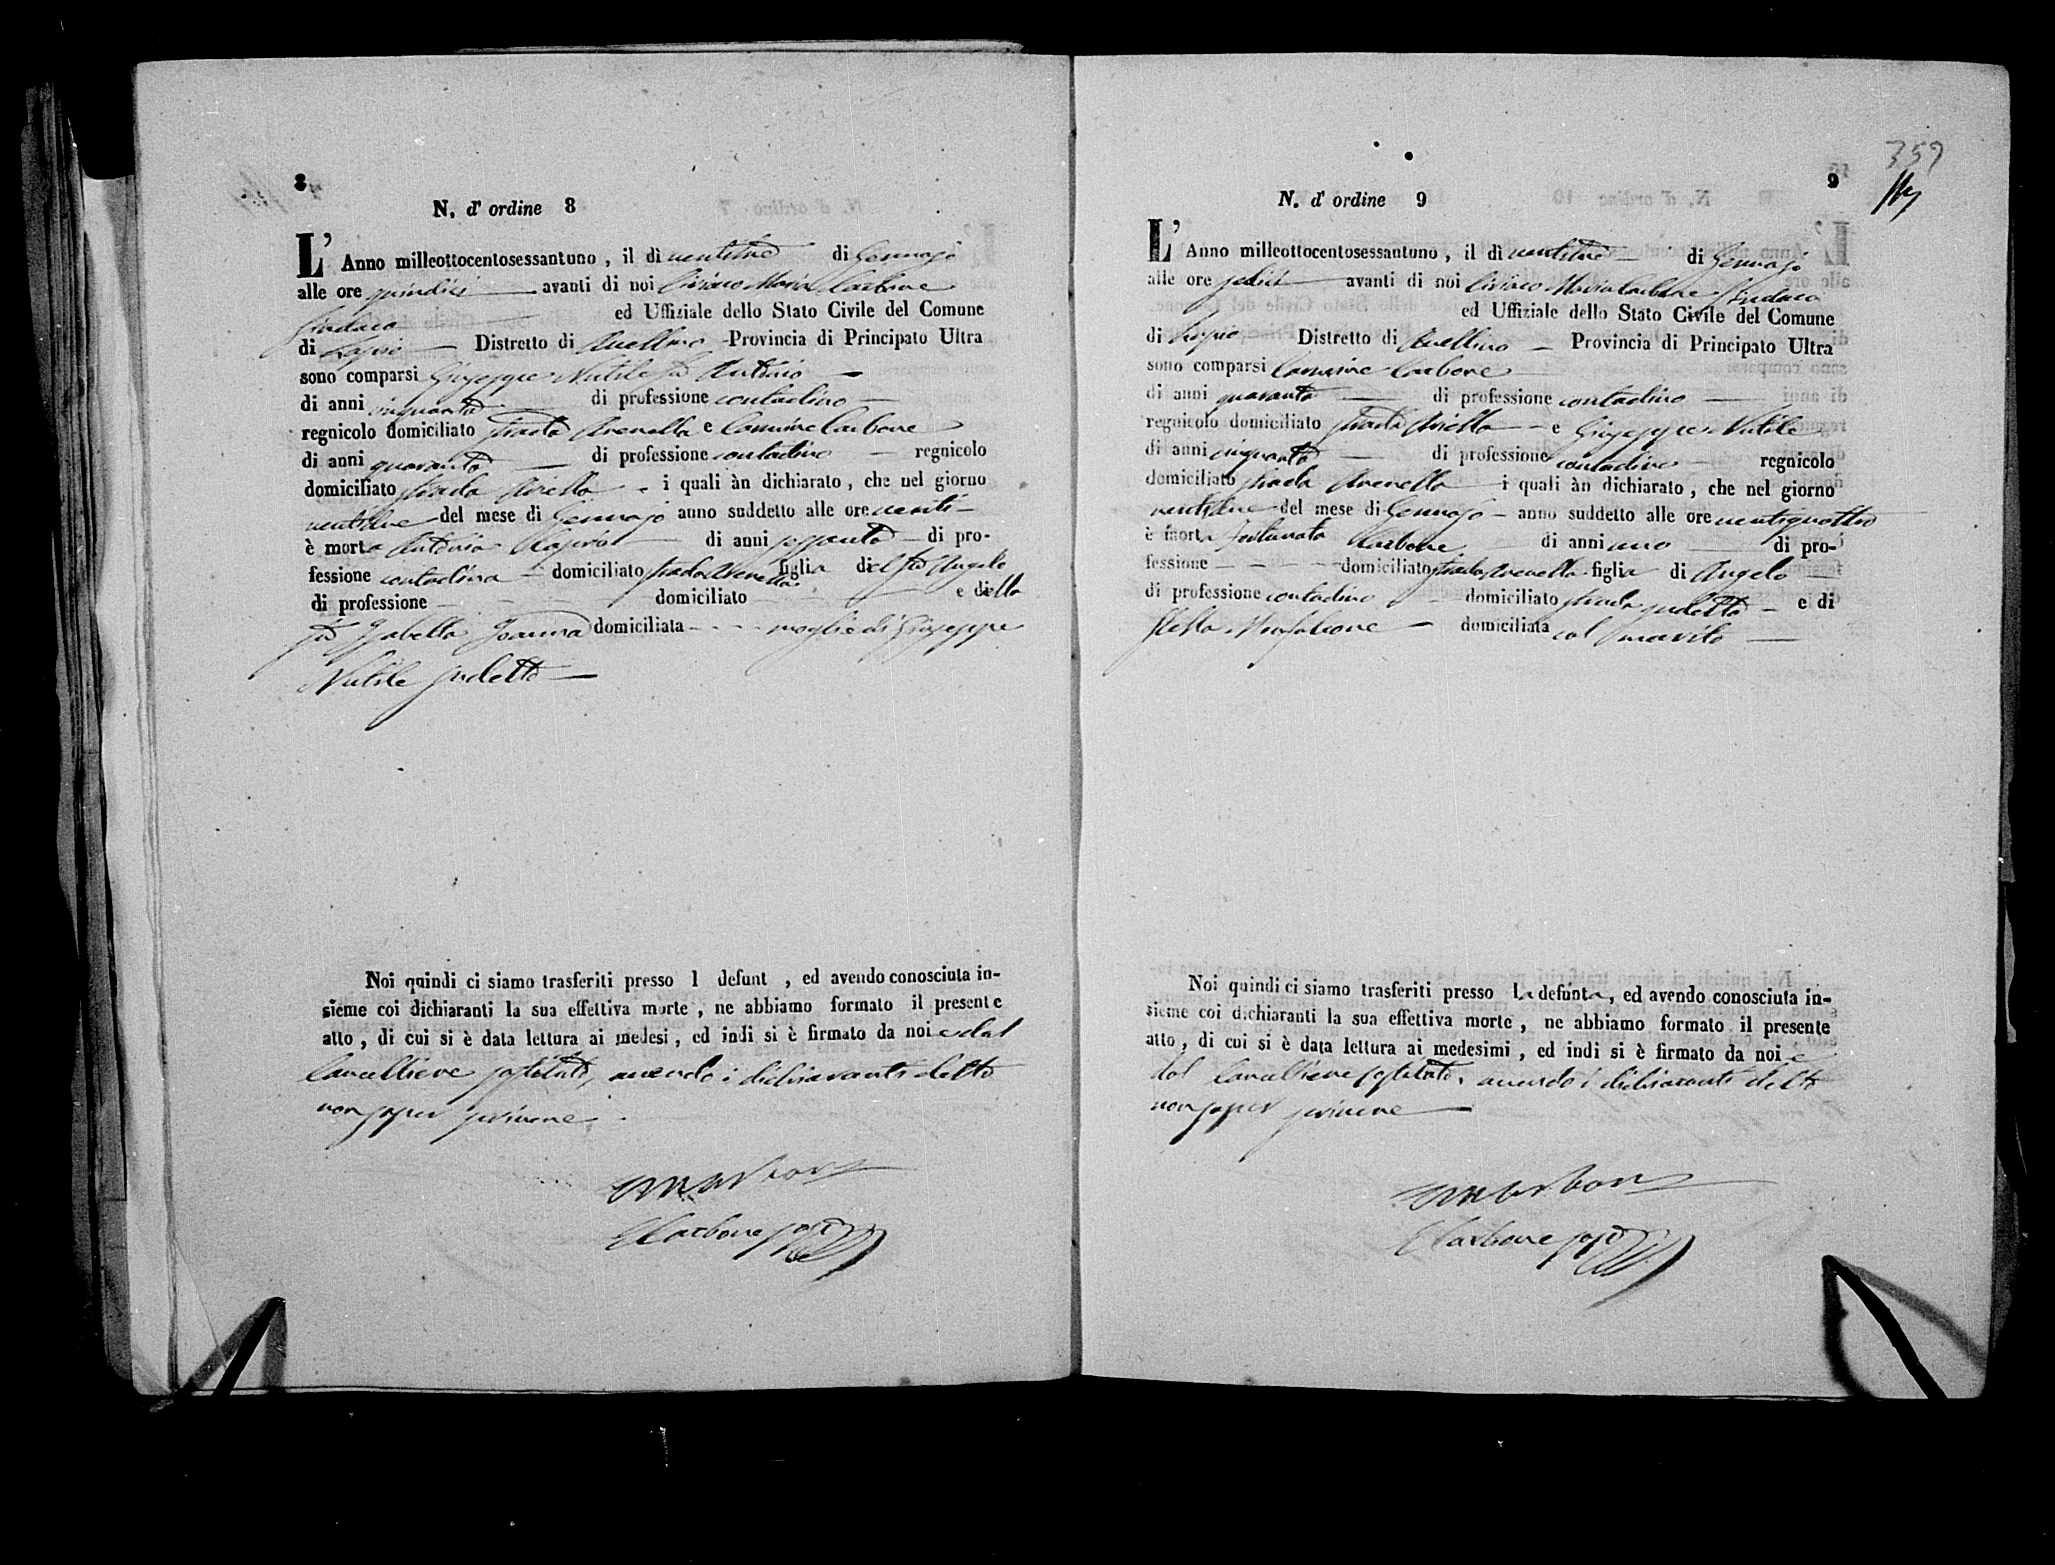 8
N. d' ordine 8
L' Anno milleottocentosessantuno, il dì ventitre di Gennajo
alle ore quindici avanti di noi Ciriaco Maria Carbone
Sindaco ed Uffiziale dello Stato Civile del Comune
di Lapio Distretto di Avellino Provincia di Principato Ultra
sono comparsi Giuseppe Nutile fu Antonio
di anni cinquanta di professione contadino
regnicolo domiciliato strada Arenella e Carmine Carbone
di anni quaranta di professione contadino regnicolo
domiciliato strada Ariella i quali àn dichiarato, che nel giorno
ventidue del mese di Gennajo anno suddetto alle ore venti
è morta Antonia di anni sessanta di pro-
fessione contadina domiciliato strada Arenella figlia del fu Angelo
di professione domiciliato e della
fu Isabella domiciliata moglie di Giuseppe
Nutile sudetto
Noi quindi ci siamo trasferiti presso l defunt , ed avendo conosciuta in-
sieme coi dichiaranti la sua effettiva morte, ne abbiamo formato il presente
atto, di cui si è data lettura ai medesi, ed indi si è firmato da noi e dal
Cancelliere sostituto, avendo i dichiaranti detto
non saper scrivere
Carbone sost
359
9
N. d' ordine 9
L' Anno milleottocentosessantuno, il dì ventitre di Gennajo
alle ore sedici avanti di noi Ciriaco Maria Carbone Sindaco
ed Uffiziale dello Stato Civile del Comune
di Lapio Distretto di Avellino Provincia di Principato Ultra
sono comparsi Carmine Carbone
di anni quaranta di professione contadino
regnicolo domiciliato strada Ariella e Giuseppe Nutile
di anni cinquanta di professione contadino regnicolo
domiciliato strada Arenella i quali àn dichiarato, che nel giorno
ventidue del mese di Gennajo anno suddetto alle ore ventiquattro
è morta Fortunata Carbone di anni uno di pro-
fessione domiciliato strada Arenella figlia di Angelo
di professione contadino domiciliato strada sudetta e di
Stella domiciliata col marito
Noi quindi ci siamo trasferiti presso la defunta, ed avendo conosciuta in-
sieme coi dichiaranti la sua effettiva morte, ne abbiamo formato il presente
atto, di cui si è data lettura ai medesimi, ed indi si è firmato da noi e
dal Cancelliere sostituto, avendo i dichiaranti detto
non saper scrivere
Carbone sost